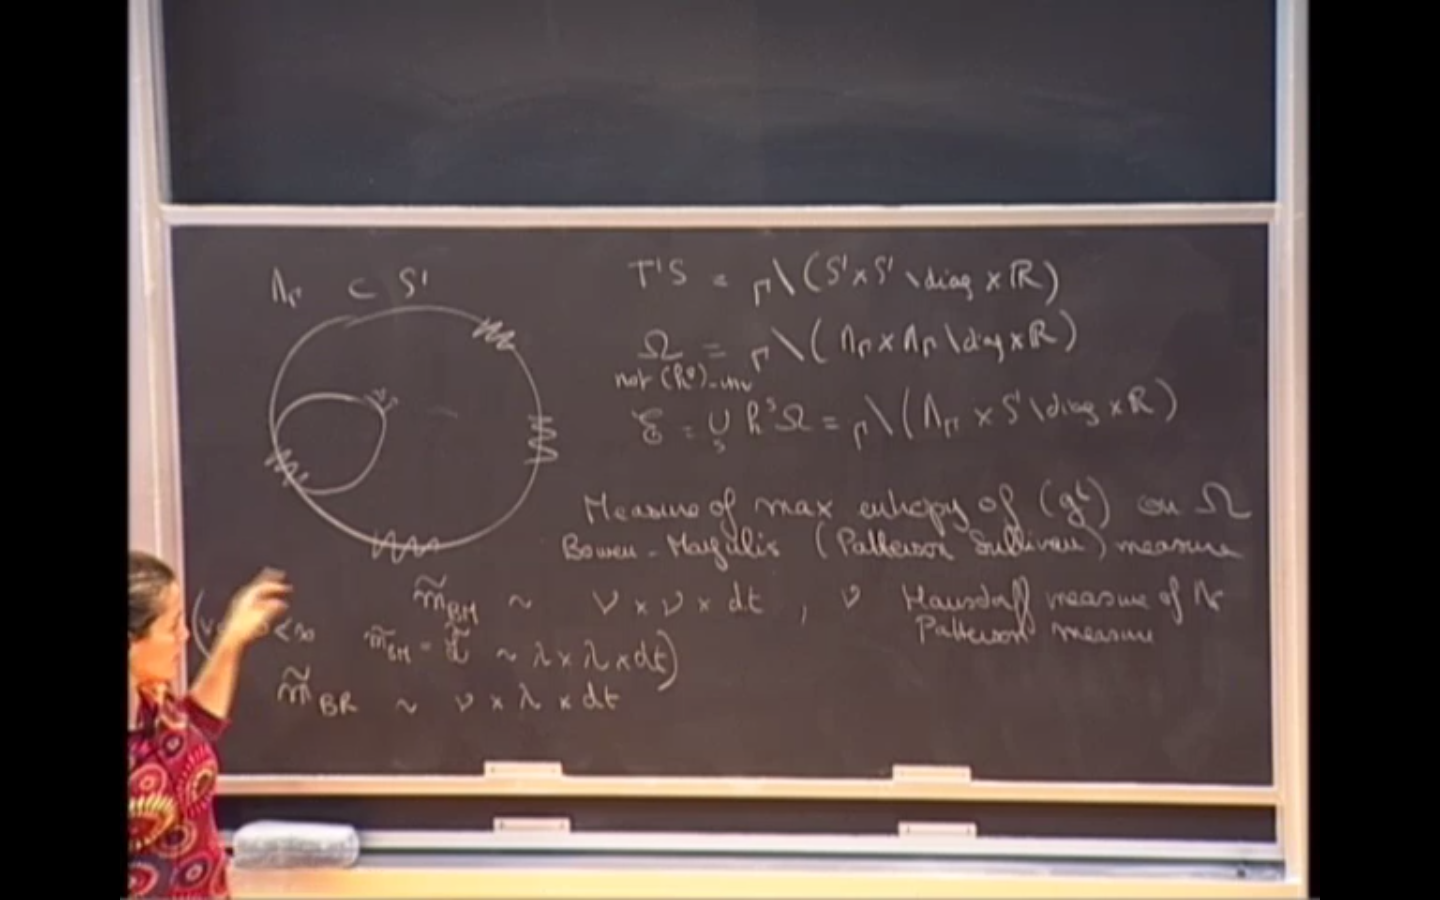 Λ_Γ ⊂ S¹
T¹S = Γ\(S¹×S¹\diag × ℝ)
Ω = Γ\(Λ_Γ × Λ_Γ\diag × ℝ)
not (hˢ)-inv
ℰ = ∪_s hˢΩ = Γ\(Λ_Γ × S¹\diag × ℝ)
Measure of max entropy of (gᵗ) on Ω
Bowen-Margulis (Patterson Sullivan) measure
m̃_BM ~ ν × ν × dt , ν Hausdorff measure of Λ_Γ
Patterson measure
< ∞ m̃_BM = ~ λ × λ × dt)
m̃_BR ~ ν × λ × dt